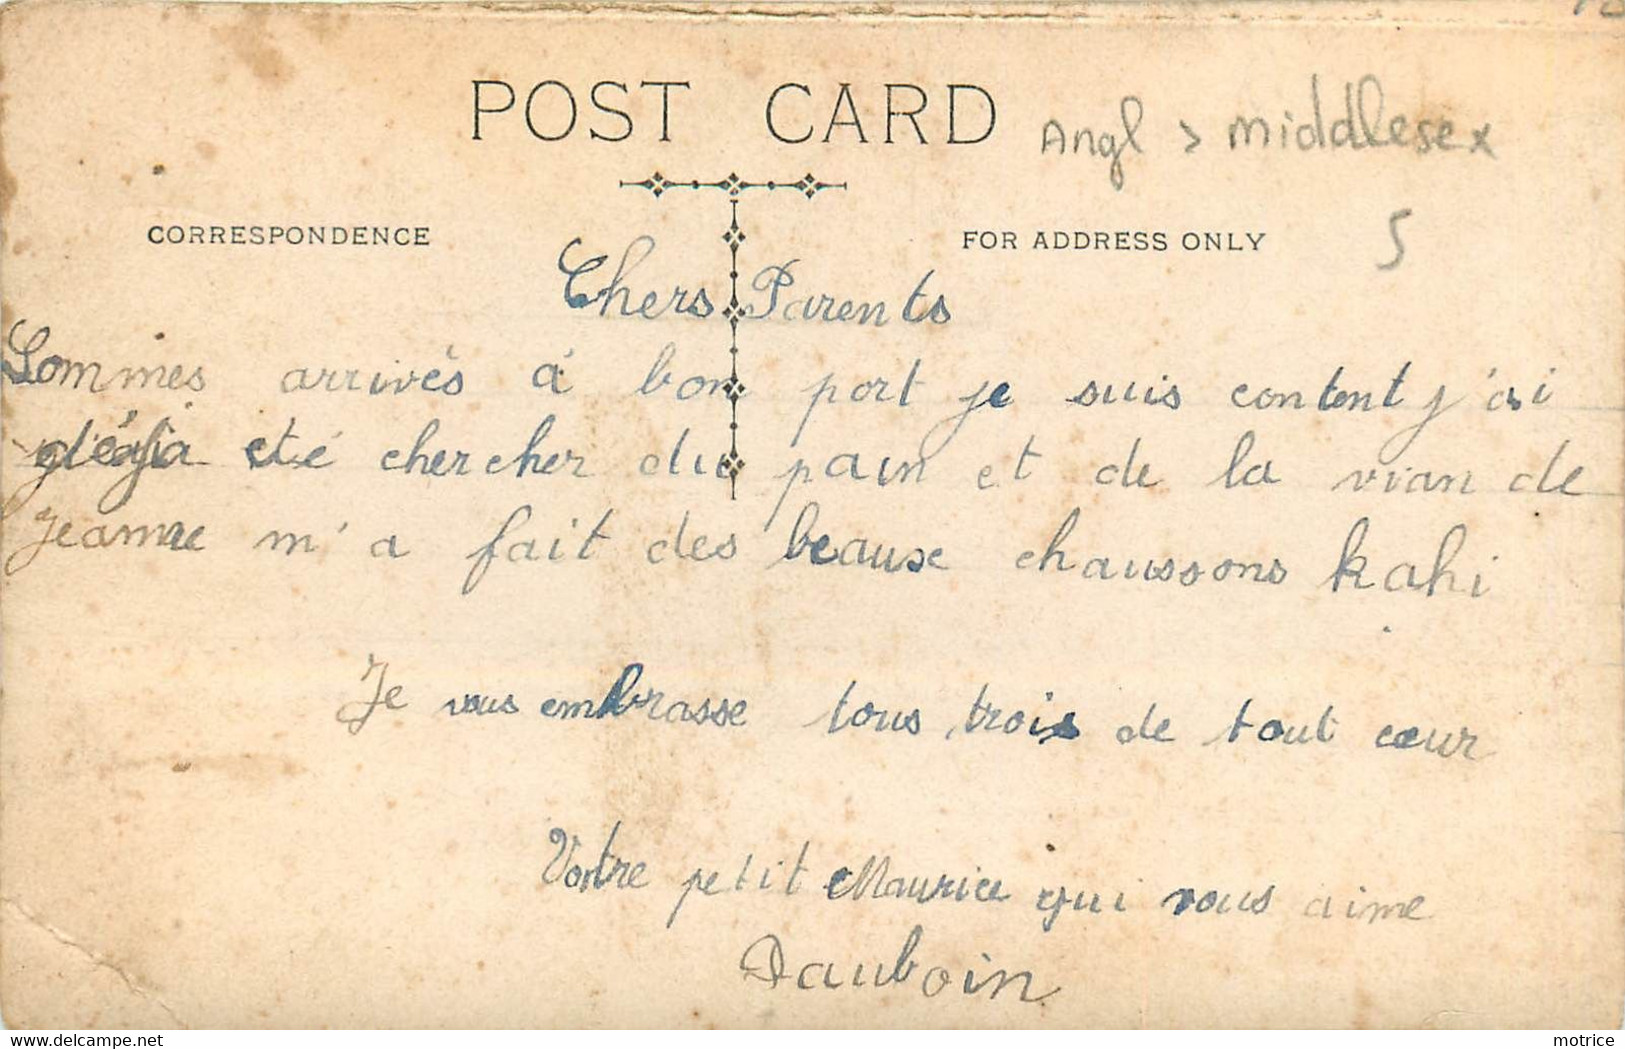 POST CARD
Angl > Middlesex
CORRESPONDENCE
FOR ADDRESS ONLY
5
Chers Parents
Sommes arrivés à bon port je suis content j'ai
déja eté chercher du pain et de la vian de
Jeanne m'a fait des beaux chaussons kahi
Je vous embrasse tous trois de tout cœur
Vontre petit Maurice qui vous aime
Dauboin
motrice